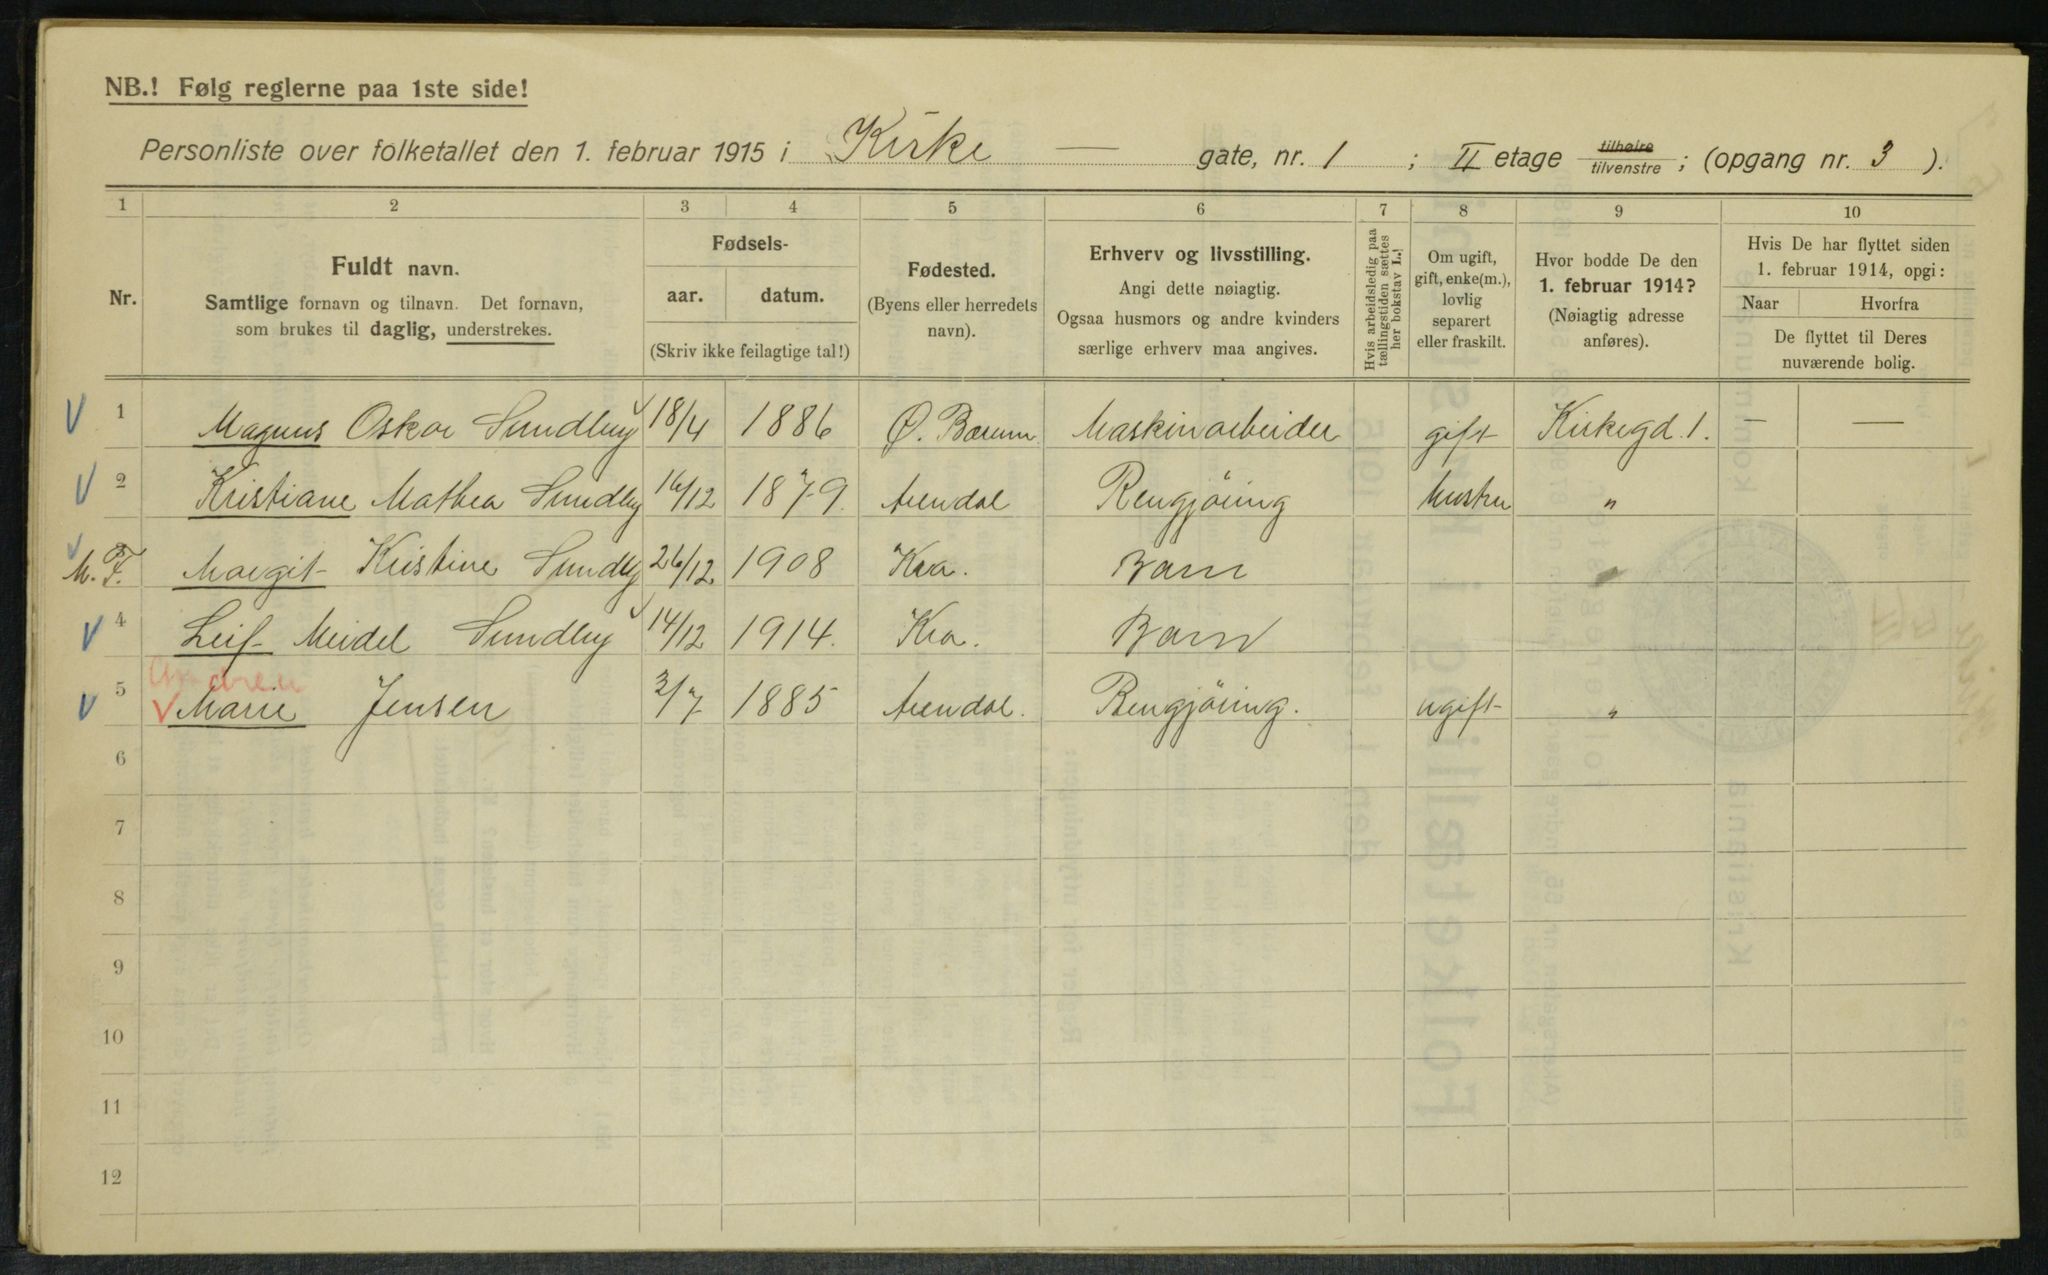 NB.! Følg reglerne paa 1ste side!
Personliste over folketallet den 1. februar 1915 i Kirke — gate, nr. 1 ; II etage tilhøire tilvenstre ; (opgang nr. 3 ).
1 2 3 4 5 6 7 8 9 10
Nr.
Fuldt navn.
Samtlige fornavn og tilnavn. Det fornavn,
som brukes til daglig, understrekes.
Fødsels-
aar. datum.
(Skriv ikke feilagtige tal!)
Fødested.
(Byens eller herredets
navn).
Erhverv og livsstilling.
Angi dette nøiagtig.
Ogsaa husmors og andre kvinders
særlige erhverv maa angives.
Hvis arbeidsledig paa
tællingstiden sættes
her bokstav L.!
Om ugift,
gift, enke(m.),
lovlig
separert
eller fraskilt.
Hvor bodde De den
1. februar 1914?
(Nøiagtig adresse
anføres).
Hvis De har flyttet siden
1. februar 1914, opgi:
Naar Hvorfra
De flyttet til Deres
nuværende bolig.
1 Magnus Oskar Sundby 18/4 1886 Ø. Bærum Maskinarbeider gift Kirkegd. 1. — —
2 Kristiane Mathea Sundby 16/12 1879. Arendal Rengjöring hustru "
M. F. 3 Margit Kristine Sundby 26/12 1908 Kra. Barn "
4 Leif Meidel Sundby 14/12 1914. Kra. Barn
5 Marie Jensen 3/7 1885 Arendal. Rengjöring. ugift "
6
7
8
9
10
11
12